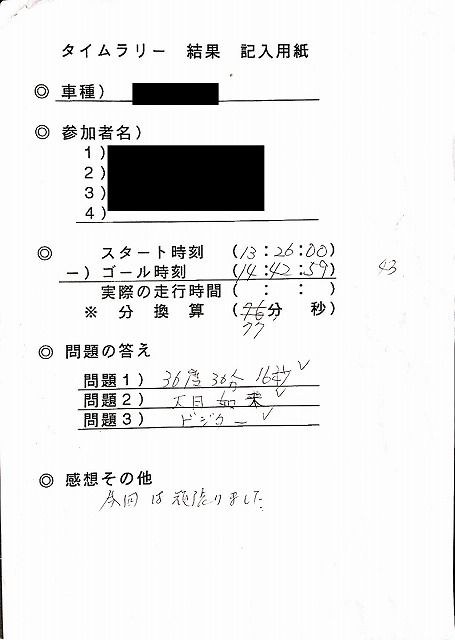 タイムラリー 結果 記入用紙
◎ 車種)
◎ 参加者名)
1)
2)
3)
4)
◎ スタート時刻 (13:26:00)
－) ゴール時刻 (14:42:59) 43
実際の走行時間 ( : : )
※ 分 換 算 (76分 秒)
77
◎ 問題の答え
問題1) 36度36分16秒 ✓
問題2) 大日如来 ✓
問題3) ドジター ✓
◎ 感想その他
今回は頑張りました